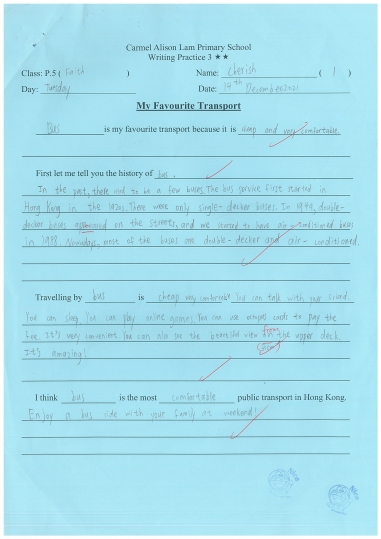 Carmel Alison Lam Primary School
Writing Practice 3 ★★
Class: P.5 ( Faith ) Name: Cherish ( 1 )
Day: Tuesday Date: 14th December 2021
My Favourite Transport
Bus is my favourite transport because it is cheap and very comfortable.
First let me tell you the history of bus.
In the past, there used to be a few buses. The bus service first started in
Hong Kong in the 1920s. There were only single-decker buses. In 1949, double-
decker buses appeared on the streets, and we started to have air-conditioned buses
in 1988. Nowadays, most of the buses are double-decker and air-conditioned.
Travelling by bus is cheap very comfortable. You can talk with your friend.
You can sleep. You can play online games. You can use octopus cards to pay the
fee. It's very convenient. You can also see the beautiful view from the upper deck.
It's amazing!
I think bus is the most comfortable public transport in Hong Kong.
Enjoy a bus ride with your family at weekend!